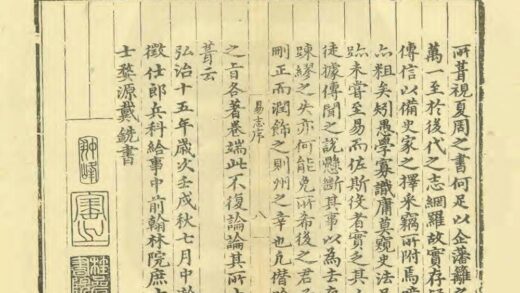 所葺視夏周之書何足以企藩籬
萬一至於後代之志網羅故實存
傳信以備史家之擇采竊所附焉
亦粗矣矧愚學寡識庸莫窺史法
迹未嘗至易而佐斯役者實之其人
徒據傳聞之說懸斷其事以為去
踈繆之失亦何能免所希後之君
剛正而潤飾之則州之幸也凡僭
易志序
八
之旨各著卷端此不復論論其所
葺云
弘治十五年歲次壬戌秋七月中
徵仕郎兵科給事中前翰林院庶
士婺源戴銑書